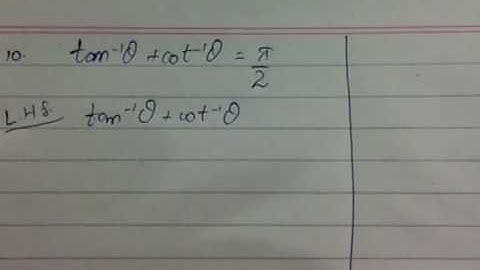 10. tan⁻¹θ + cot⁻¹θ = π/2
L H S. tan⁻¹θ + cot⁻¹θ